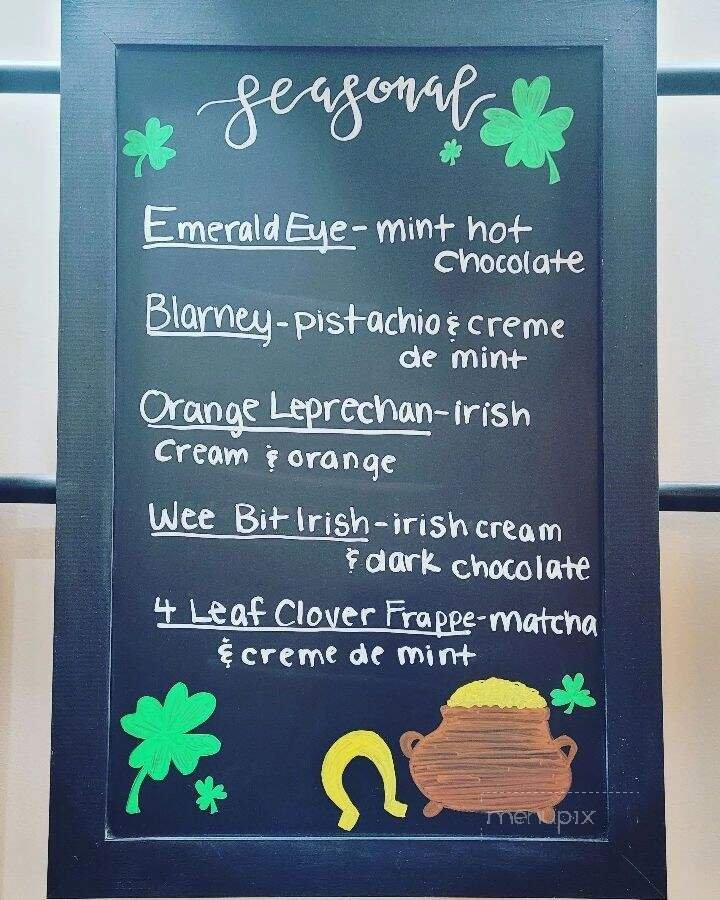 seasonal
Emerald Eye - mint hot
chocolate
Blarney - pistachio & creme
de mint
Orange Leprechan - irish
cream & orange
Wee Bit Irish - irish cream
& dark chocolate
4 Leaf Clover Frappe - matcha
& creme de mint
menupix